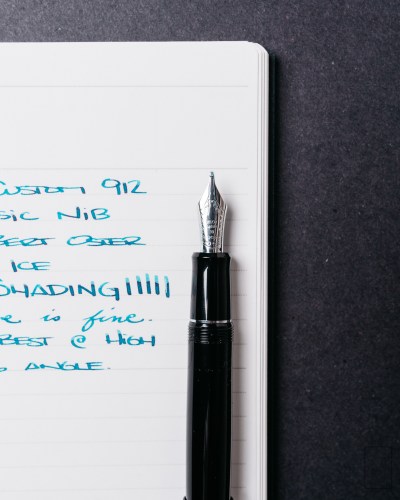 CUSTOM 912
SIC NIB
BERT OSTER
ICE
SHADING !!!!!
e is fine.
BEST @ HIGH
ANGLE.